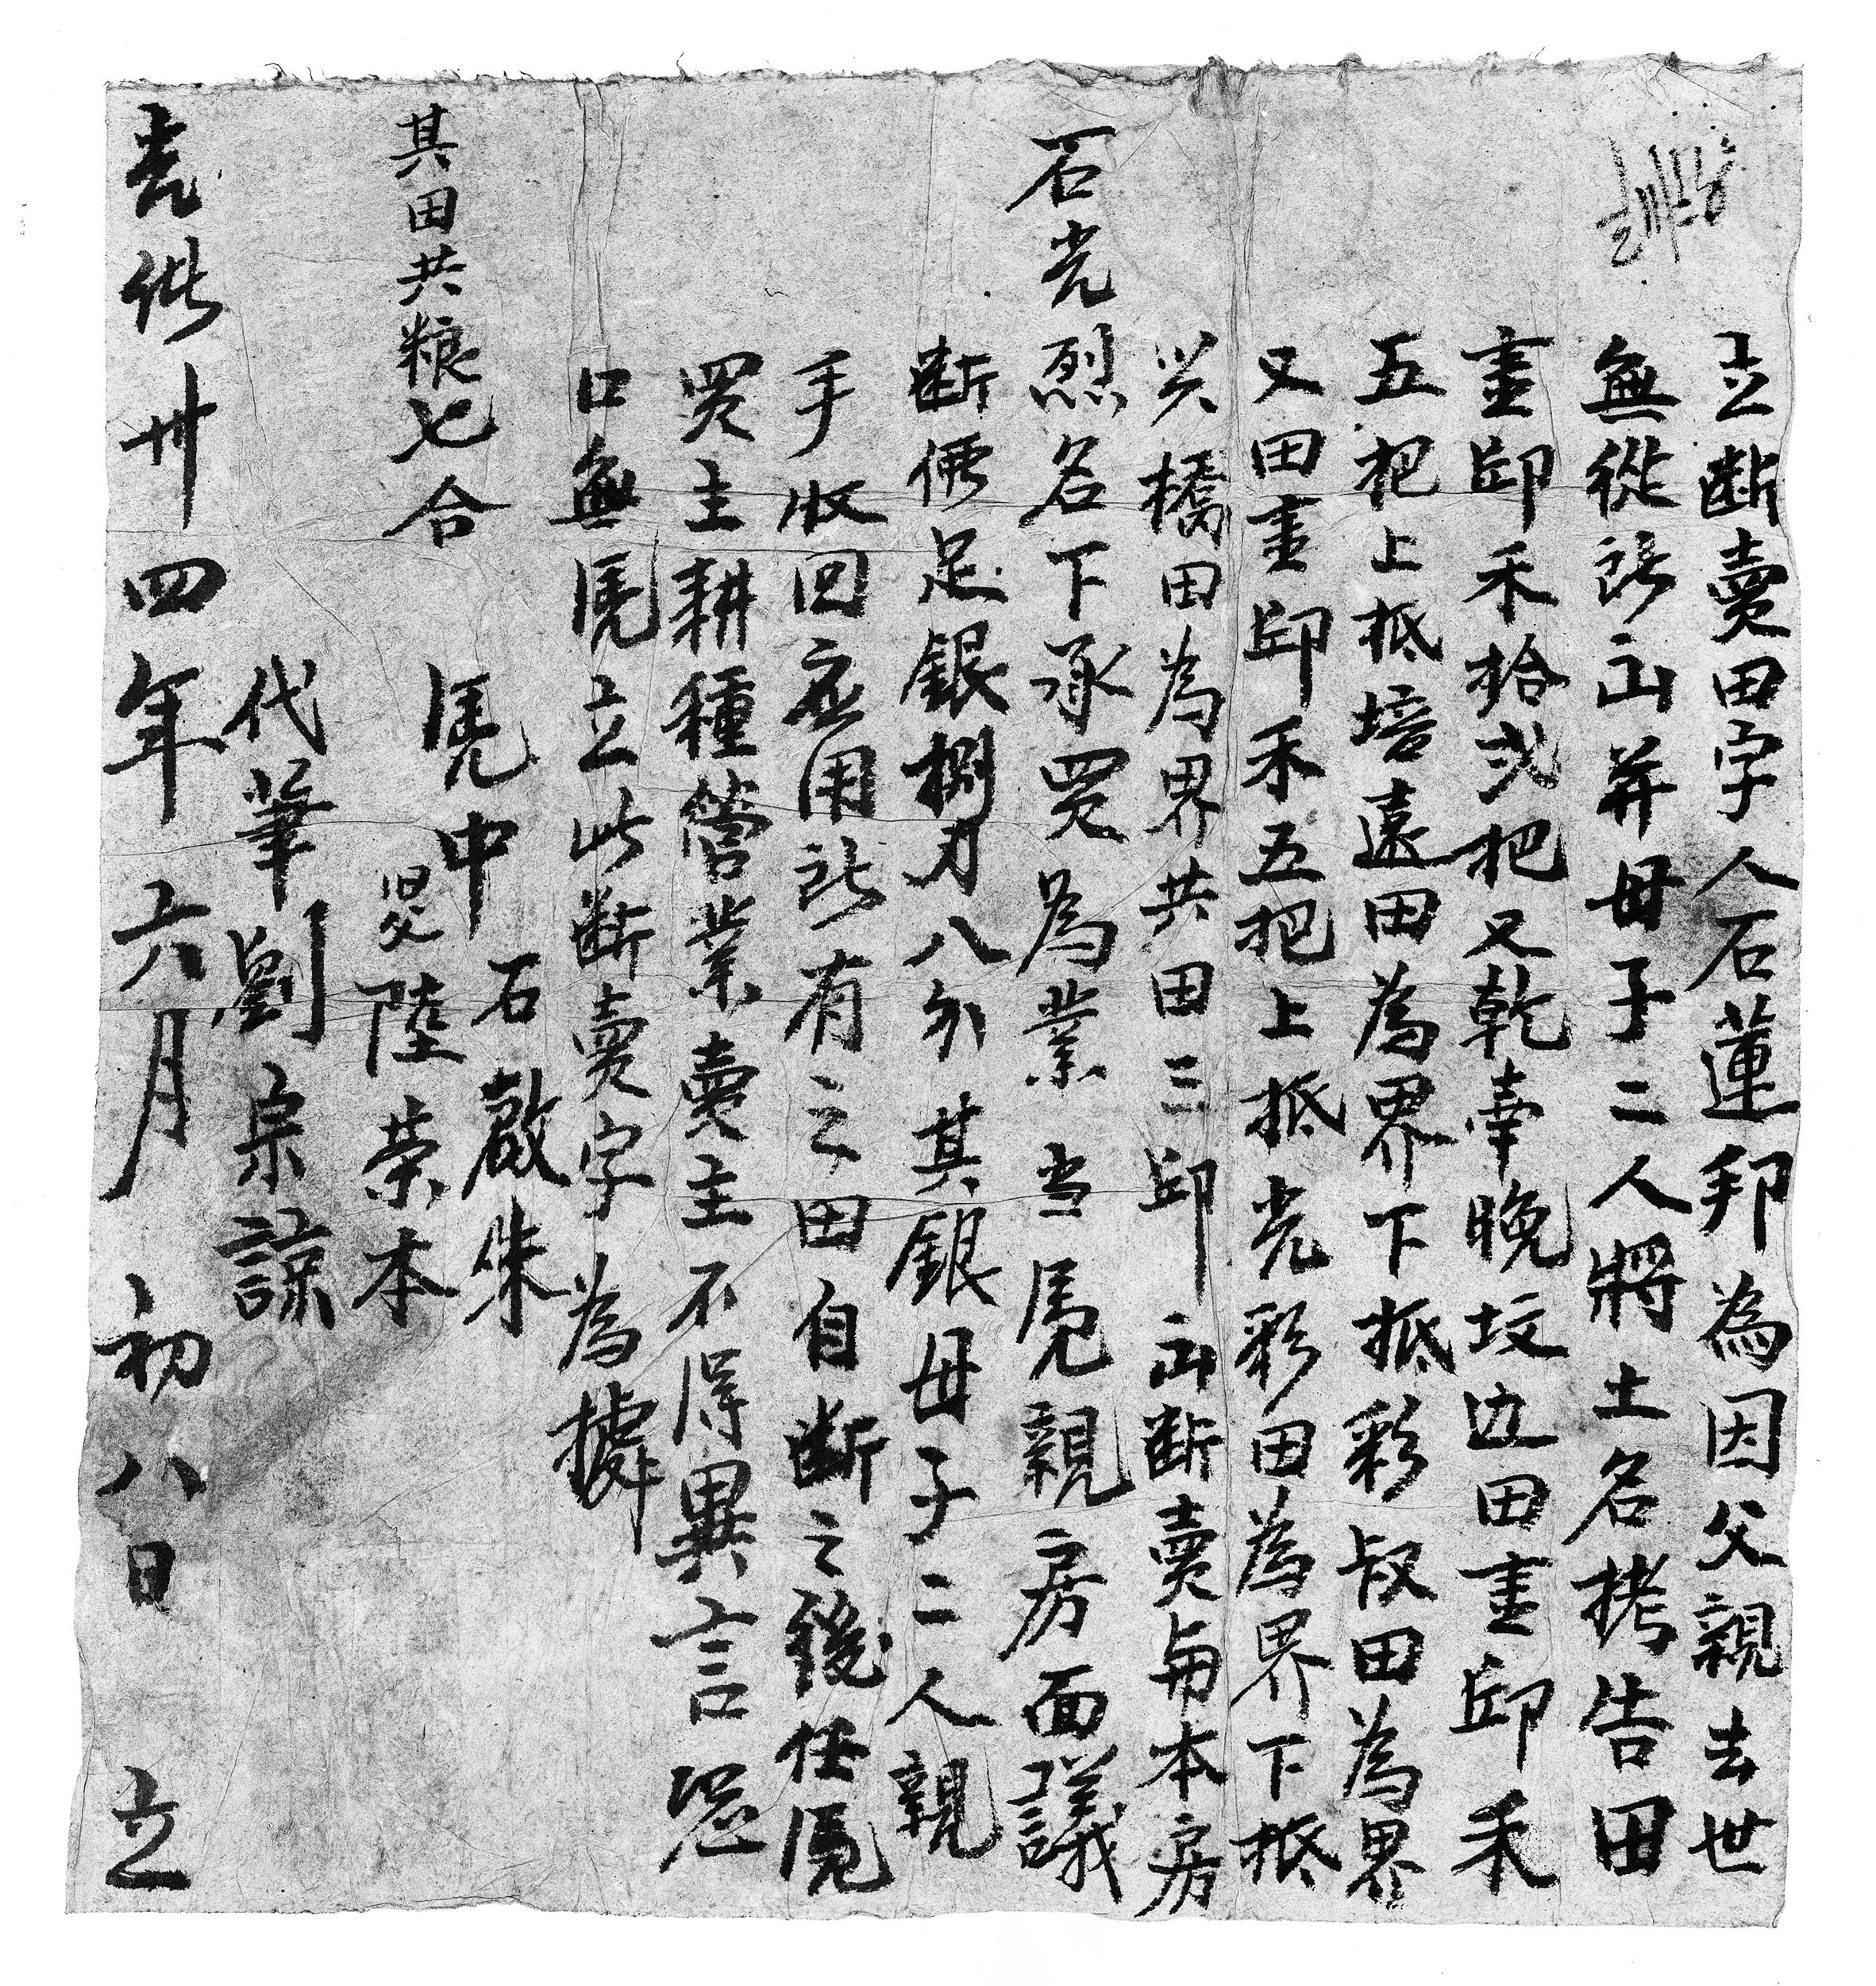 立断賣田字人石蓮邦為因父親去世
無從所出并母子二人將土名拷告田
壹邱禾拾弍把又乾牽晚坟边田壹邱禾
五把上抵培遠田為界下抵彩叔田為界
又田壹邱禾五把上抵光彩田為界下抵
兴橋田為界共田三邱出断賣與本房
石光烈名下承買為業当凴親房面議
断價足銀捌刃八分其銀母子二人親
手收回应用所有之田自断之後任凴
買主耕種管業賣主不得異言恐
口無凴立此断賣字為據
其田共粮七合
凴中 石啟朱
陸荣本
代筆劉宗諒
光緒卅四年六月初八日立